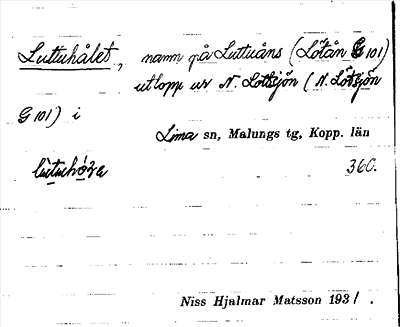 Luttuhålet, namn på Luttuåns (Lötån G 101)
utlopp ur N. Lötsjön (N. Lötsjön
G 101) i
Lima sn, Malungs tg, Kopp. län
360.
Niss Hjalmar Matsson 1931.